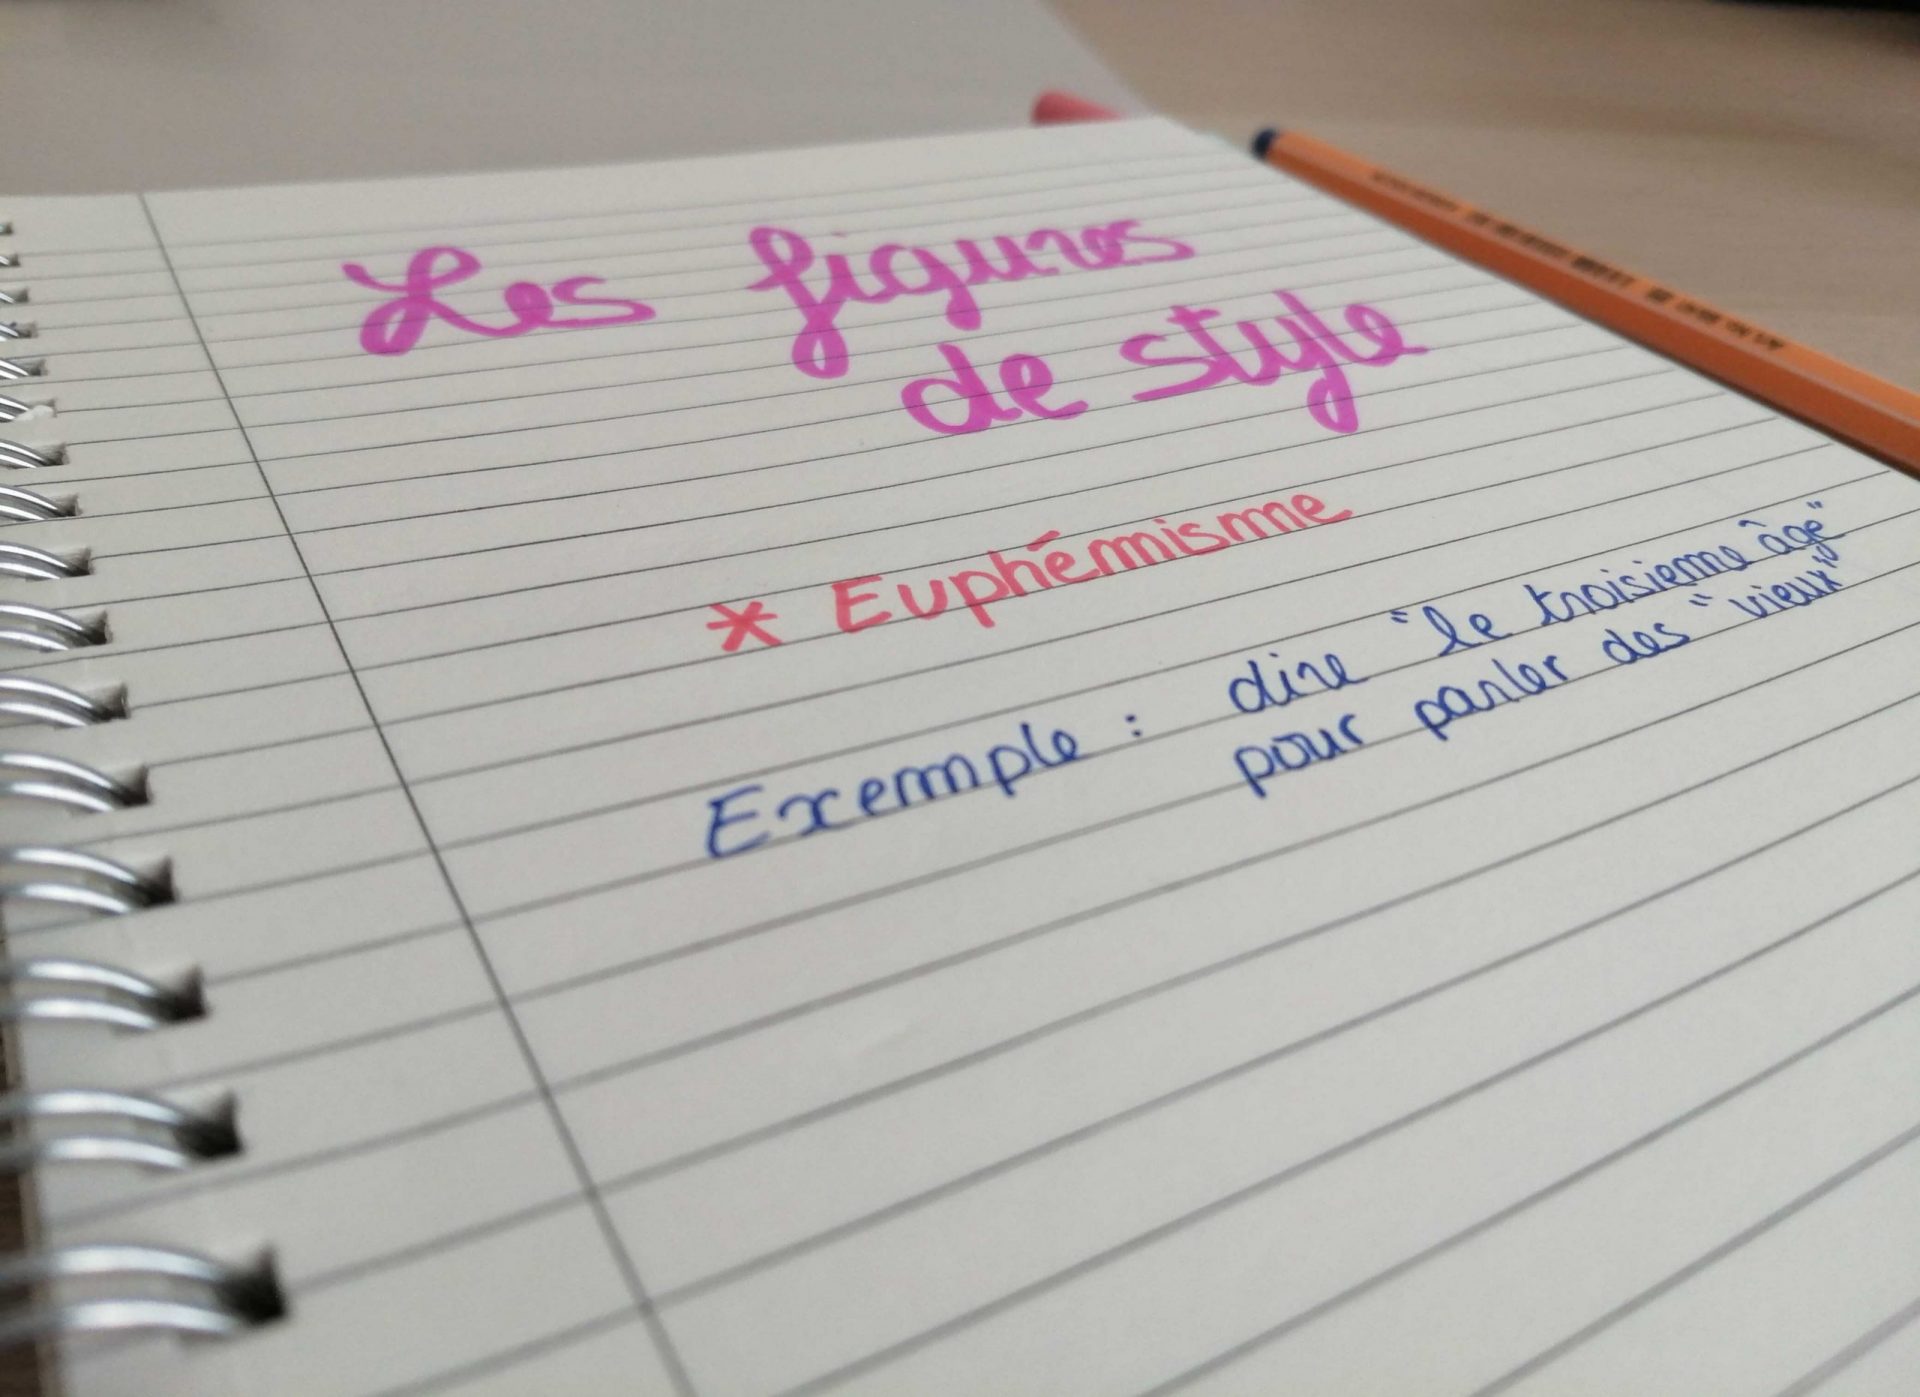 Les figures
de style
* Euphémisme
Exemple : dire "le troisieme âge"
pour parler des "vieux"